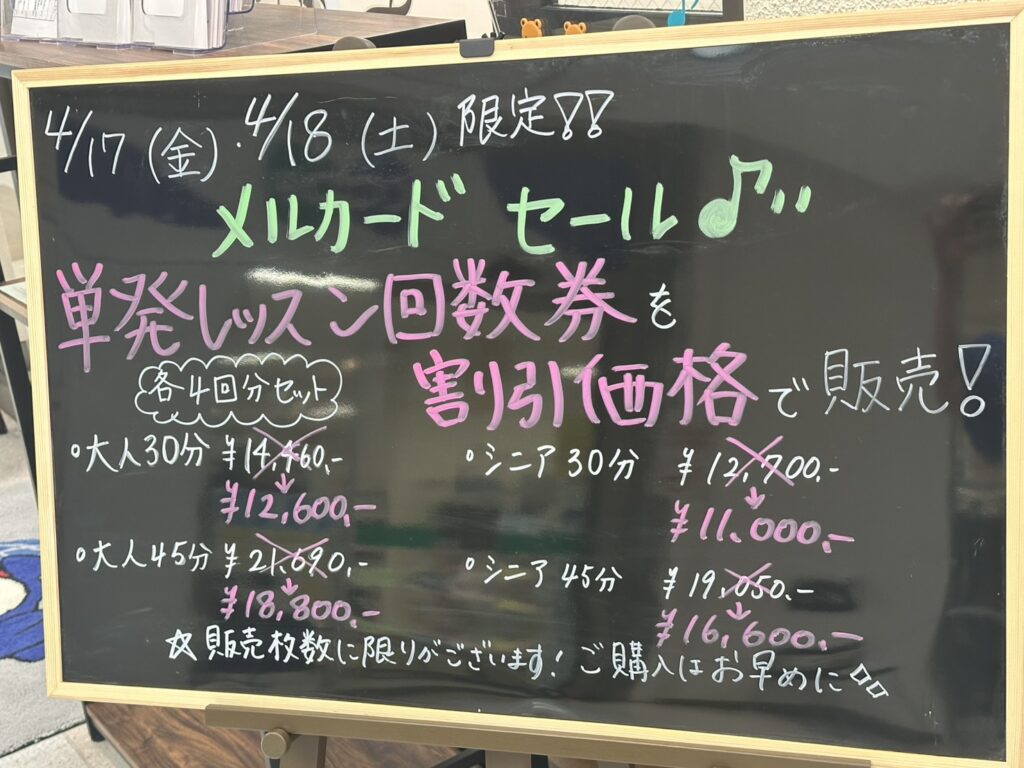 4/17(金)・4/18(土)限定!!
メルカード セール♪
単発レッスン回数券を
割引価格で販売!
各4回分セット
・大人30分 ¥14,460.-
↓
¥12,600.-
・シニア30分 ¥12,700.-
↓
¥11,000.-
・大人45分 ¥21,690.-
↓
¥18,800.-
・シニア45分 ¥19,050.-
↓
¥16,600.-
☆販売枚数に限りがございます!ご購入はお早めに